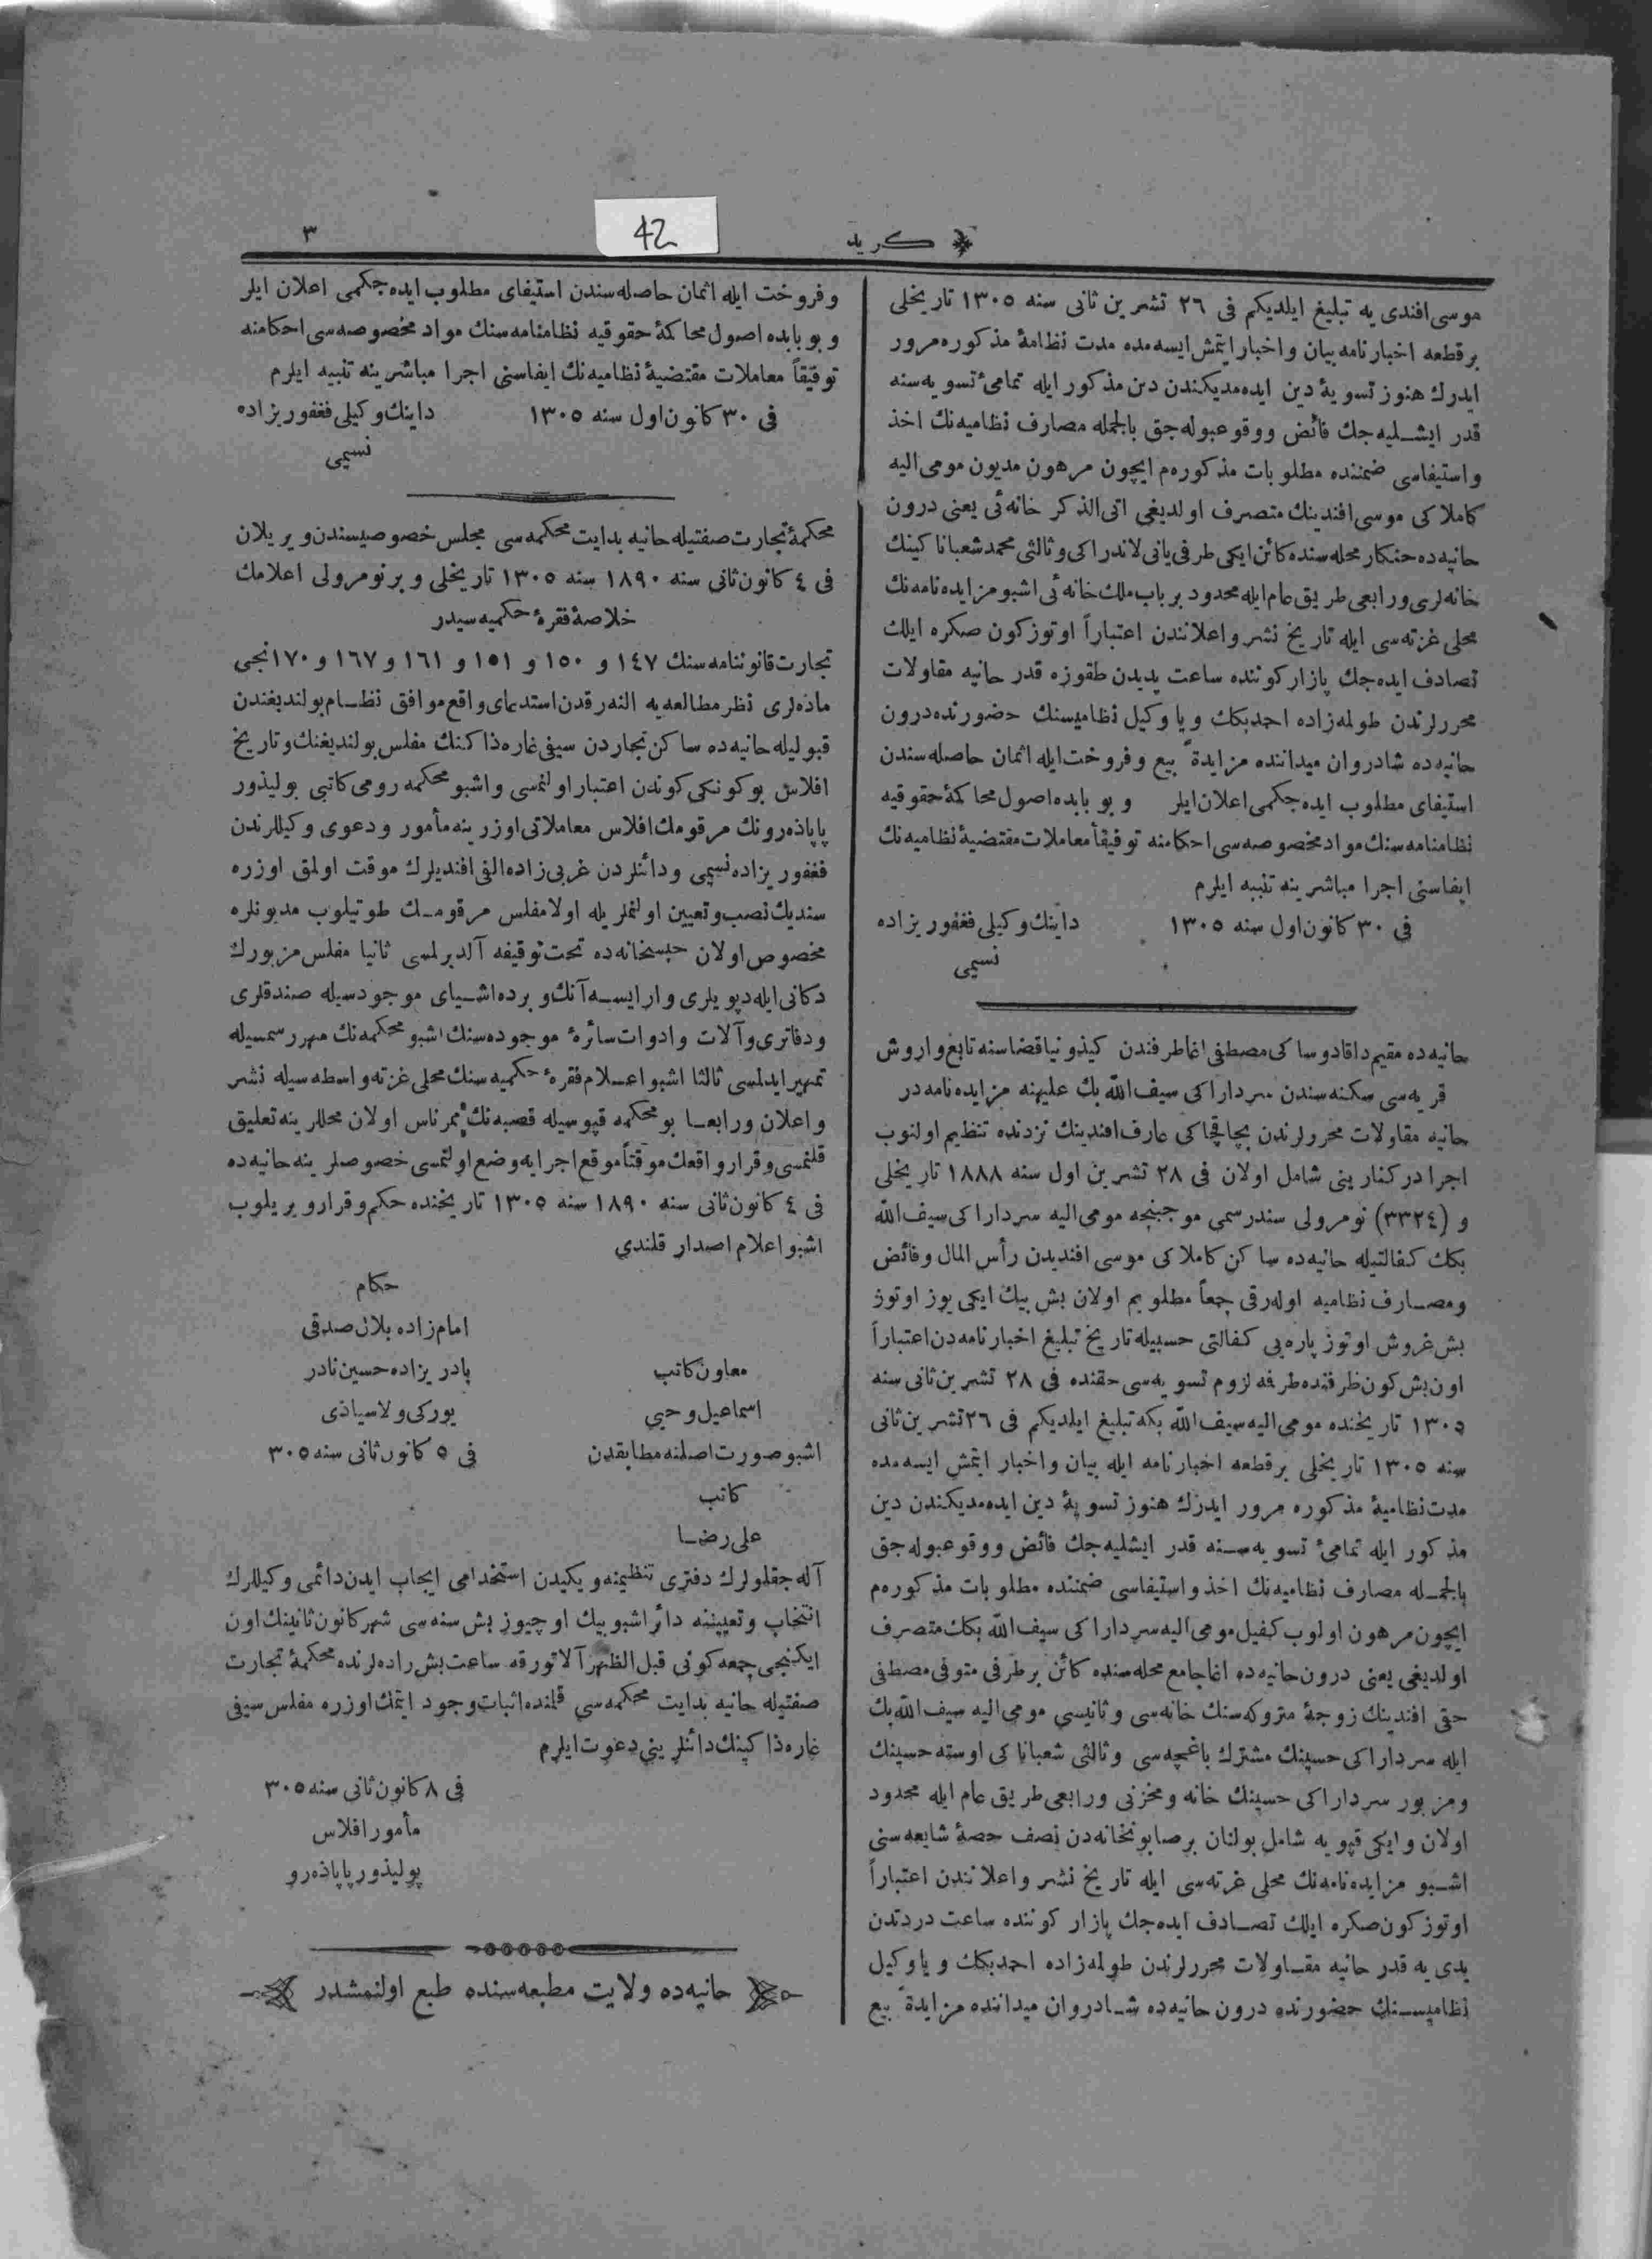 كريد
٤٢
٣
موسی افندی یه تبلیغ ایلدیكم فی ٢٦ تشرین ثانی سنه ١٣٠٥ تاریخلی
برقطعه اخبارنامه بیان و اخبار ایتمش ایسه‌مده مدت نظامۀ مذكوره مرور
ایدرك هنوز تسویۀ دین ایده‌مدیكندن دین مذكور ایله تمامیٔ تسویه‌سنه
قدر ایشلیه‌جك فائض ووقوعبوله‌جق بالجمله مصارف نظامیه‌نك اخذ
و استیفاسی ضمننده مطلوبات مذكوره‌م ایچون مرهون مدیون مومی‌الیه
كاملاكی موسی افندینك متصرف اولدیغی اتی‌الذكر خانه‌ئی یعنی درون
حانیه‌ده حنكار محله‌سنده كائن ایكی طرفی یانی لاندراكی و ثالثی محمد شعبانا كینك
خانه‌لری و رابعی طریق عام ایله محدود بر باب ملك خانه‌ئی اشبو مزایده‌نامه‌نك
محلی غزته‌سی ایله تاریخ نشر و اعلانندن اعتباراً اوتوزكون صكره ایلك
تصادف ایده‌جك پازار كوننده ساعت یدیدن طقوزه قدر حانیه مقاولات
محررلرندن طولمه‌زاده احمدبكك و یا وكیل نظامیسنك حضورنده درون
حانیه‌ده شادروان میداننده مزایدةً بیع و فروخت ایله اثمان حاصله‌سندن
استیفای مطلوب ایده‌جكمی اعلان ایلر و بو بابده اصول محاكمۀ حقوقیه
نظامنامه‌سنك مواد مخصوصه‌سی احكامنه توفیقاً معاملات مقتضیۀ نظامیه‌نك
ایفاسنی اجرا مباشرینه تنبیه ایلرم
فی ٣٠ كانون اول سنه ١٣٠٥ داینك وكیلی فغفوریزاده
نسیمی
حانیه‌ده مقیم داقادوساكی مصطفی اغا طرفندن كیذونیا قضاسنه تابع واروش
قریه‌سی سكنه‌سندن سرداراكی سیف‌الله بك علیهنه مزایده‌نامه در
حانیه مقاولات محررلرندن بچاقجاكی عارف افندینك نزدنده تنظیم اولنوب
اجرا دركنارینی شامل اولان فی ٢٨ تشرین اول سنه ١٨٨٨ تاریخلی
و (٣٣٢٤) نومرولی سندرسمی موجبنجه مومی‌الیه سرداراكی سیف‌الله
بكك كفالتیله حانیه‌ده ساكن كاملاكی موسی افندیدن رأس المال و فائض
ومصارف نظامیه اوله‌رق جمعاً مطلوبم اولان بش بیك ایكی یوز اوتوز
بش غروش اوتوز پاره‌یی كفالتی حسبیله تاریخ تبلیغ اخبارنامه‌دن اعتباراً
اون‌بش كون ظرفنده طرفه لزوم تسویه‌سی حقنده فی ٢٨ تشرین ثانی سنه
١٣٠٥ تاریخنده مومی‌الیه سیف‌الله بكه تبلیغ ایلدیكم فی ٢٦ تشرین ثانی
سنه ١٣٠٥ تاریخلی برقطعه اخبارنامه ایله بیان و اخبار ایتمش ایسه‌مده
مدت نظامیۀ مذكوره مرور ایدرك هنوز تسویۀ دین ایده‌مدیكندن دین
مذكور ایله تمامیٔ تسویه‌سنه قدر ایشلیه‌جك فائض ووقوعبوله‌جق
بالجمله مصارف نظامیه‌نك اخذ و استیفاسی ضمننده مطلوبات مذكوره‌م
ایچون مرهون اولوب كفیل مومی‌الیه سرداراكی سیف‌الله بكك متصرف
اولدیغی یعنی درون حانیه‌ده اغا جامع محله‌سنده كائن بر طرفی متوفی مصطفی
حقی افندینك زوجۀ متروكه‌سنك خانه‌سی و ثانیسی مومی‌الیه سیف‌الله بك
ایله سرداراكی حسینك مشترك باغچه‌سی و ثالثی شعباناكی اوسته حسینك
ومزبور سرداراكی حسینك خانه و مخزنی و رابعی طریق عام ایله محدود
اولان و ایكی قپویه شامل بولنان بر صابونخانه‌دن نصف حصۀ شایعه‌سنی
اشبو مزایده‌نامه‌نك محلی غزته‌سی ایله تاریخ نشر و اعلانندن اعتباراً
اوتوز كون صكره ایلك تصادف ایده‌جك پازار كوننده ساعت دردتدن
یدی‌یه قدر حانیه مقاولات محررلرندن طولمه‌زاده احمدبكك و یا وكیل
نظامیسنك حضورنده درون حانیه‌ده شادروان میداننده مزایدةً بیع
و فروخت ایله اثمان حاصله‌سندن استیفای مطلوب ایده‌جكمی اعلان ایلر
و بو بابده اصول محاكمۀ حقوقیه نظامنامه‌سنك مواد مخصوصه‌سی احكامنه
توفیقاً معاملات مقتضیۀ نظامیه‌نك ایفاسنی اجرا مباشرینه تنبیه ایلرم
فی ٣٠ كانون اول سنه ١٣٠٥ داینك وكیلی فغفوریزاده
نسیمی
محكمۀ تجارت صفتیله حانیه بدایت محكمه‌سی مجلس خصوصیسندن ویریلان
فی ٤ كانون ثانی سنه ١٨٩٠ سنه ١٣٠٥ تاریخلی و بر نومرولی اعلامك
خلاصۀ فقرۀ حكمیه‌سیدر
تجارت قانوننامه‌سنك ١٤٧ و ١٥٠ و ١٥١ و ١٦١ و ١٦٧ و ١٧٠ نجی
ماده‌لری نظر مطالعه‌یه النه‌رقدن استدعای واقع موافق نظام بولندیغندن
قبولیله حانیه‌ده ساكن تجاردن سیفی غاره‌ذاكنك مفلس بولندیغنك و تاریخ
افلاس بوكونكی كوندن اعتبار اولنمسی و اشبو محكمه رومی كاتبی بولیذور
پاپاذه‌رونك مرقومك افلاس معاملاتی اوزرینه مأمور و دعوی وكیللرندن
فغفوریزاده نسیمی و دائنلردن غربی‌زاده الفی افندیلرك موقت اولمق اوزره
سندیك نصب و تعیین اولنملریله اولا مفلس مرقومك طوتیلوب مدیونلره
مخصوص اولان حبسخانه‌ده تحت توقیفه آلدیرلمسی ثانیا مفلس مزبورك
دكانی ایله دپویلری وار ایسه آنك و برده اشیای موجودسیله صندقلری
و دفاتری و آلات و ادوات سائرۀ موجوده‌سنك اشبو محكمه‌نك مهر رسمسیله
تمهیر ایدلمسی ثالثا اشبو اعلام فقرۀ حكمیه‌سنك محلی غزته واسطه‌سیله نشر
و اعلان و رابعا بو محكمه قپوسیله قصبه‌نك ممر ناس اولان محللرینه تعلیق
قلنمسی و قرار واقعك موقتاً موقع اجرایه وضع اولنمسی خصوصلرینه حانیه‌ده
فی ٤ كانون ثانی سنه ١٨٩٠ سنه ١٣٠٥ تاریخنده حكم و قرار ویریلوب
اشبو اعلام اصدار قلندی
حكام
امام‌زاده بلال صدقی
معاون كاتب پادریزاده حسین نادر
اسماعیل وحبی یوركی ولاسیاذی
اشبو صورت اصلنه مطابقدن فی ٥ كانون ثانی سنه ٣٠٥
كاتب
علی رضا
آله‌جقلولرك دفتری تنظیمنه و یكیدن استخدامی ایجاب ایدن دائمی وكیللرك
انتخاب و تعییننه دائر اشبو بیك اوچیوز بش سنه‌سی شهر كانون ثانینك اون
ایكنجی جمعه كونی قبل الظهر آلاتورقه ساعت بش راده‌لرنده محكمۀ تجارت
صفتیله حانیه بدایت محكمه‌سی قلمنده اثبات وجود ایتمك اوزره مفلس سیفی
غاره‌ذاكینك دائنلرینی دعوت ایلرم
فی ٨ كانون ثانی سنه ٣٠٥
مأمور افلاس
پولیذور پاپاذه‌رو
حانیه‌ده ولایت مطبعه‌سنده طبع اولنمشدر